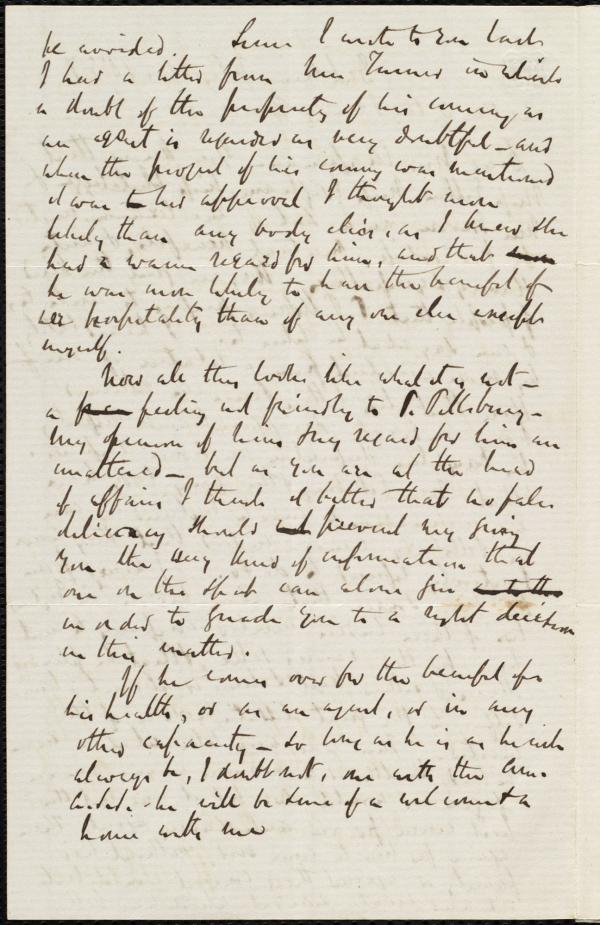 be avoided. Since I wrote to you last
I had a letter from Mrs Turner in which
a doubt of the propriety of his coming as
an agent is regarded as very doubtful - and
when the propol of his coming was mentioned
it was to his approval I thought more
likely than any body else, as I knew she
had a warm regard for him, and that
he was more likely to have the benefit of
her hospitality than of any one else except
myself.
Now all this looks like what it is not -
a feeling not friendly to P. Pillsbury -
my opinion of him & my regard for him are
unaltered - but as you are at the head
of affairs I think it better that no false
delicacy should prevent my giving
you the very kind of information that
one on the spot can alone give as to the
in order to guide you to a right decision
in this matter.
If he comes over for the benefit of
his health, or as an agent, or in any
other capacity - so long as he is as he will
always be, I doubt not, one with the Am.
he will be sure of a welcome & a
home with me